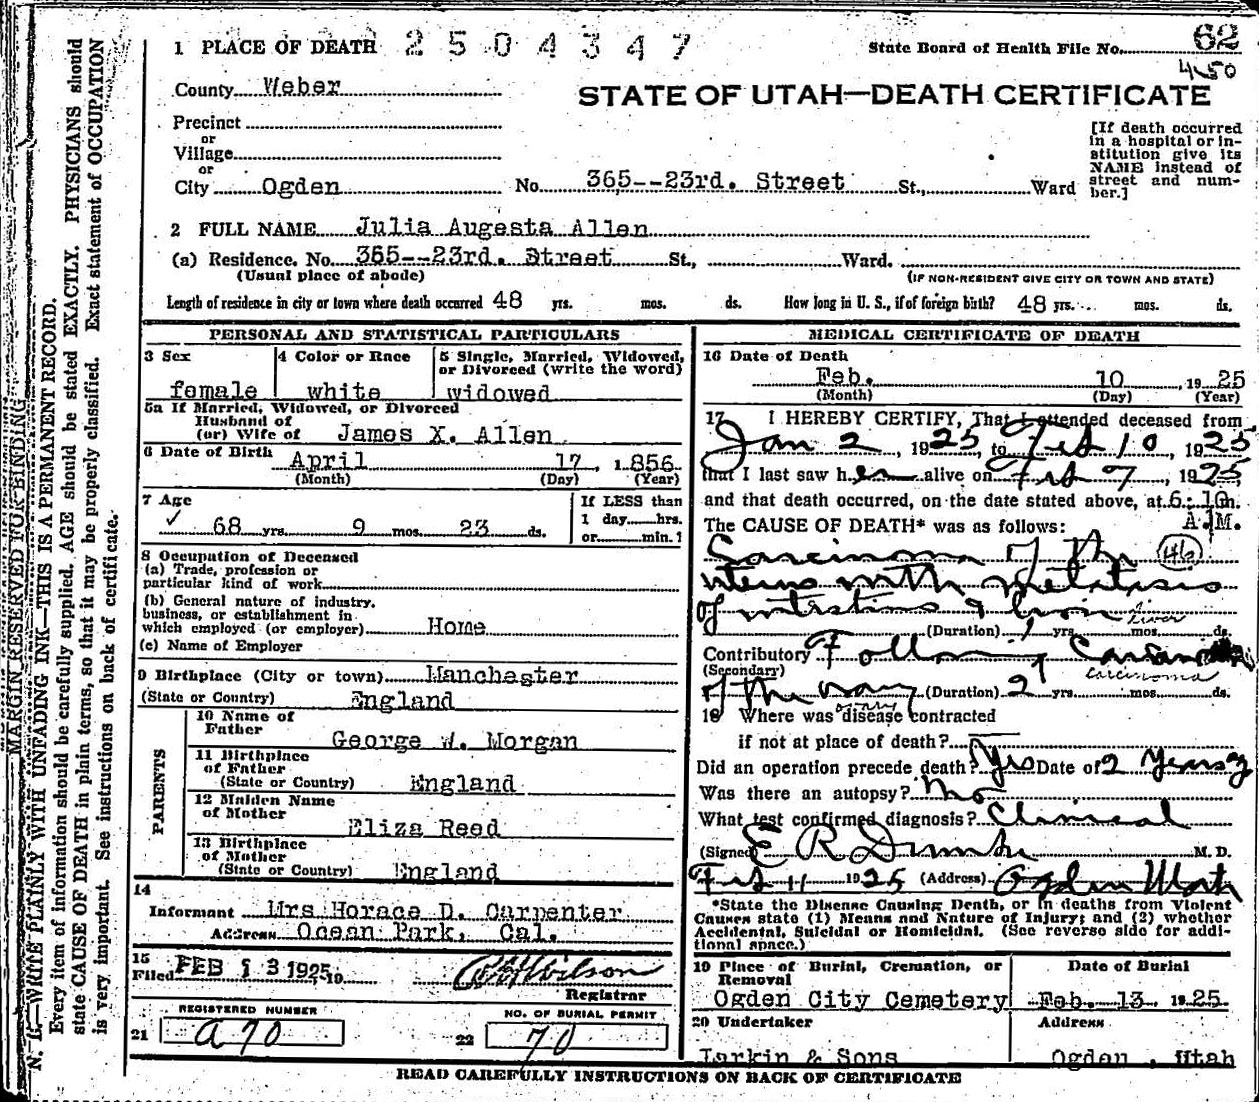 1 PLACE OF DEATH 2504347 State Board of Health File No. 62
450
County Weber STATE OF UTAH—DEATH CERTIFICATE
Precinct
or
Village
or
City Ogden No 365--23rd. Street St., Ward
[If death occurred
in a hospital or in-
stitution give its
NAME instead of
street and num-
ber.]
2 FULL NAME Julia Augesta Allen
(a) Residence. No. 365--23rd. Street St., Ward.
(Usual place of abode) (IF NON-RESIDENT GIVE CITY OR TOWN AND STATE)
Length of residence in city or town where death occurred 48 yrs. mos. ds. How long in U. S., if of foreign birth? 48 yrs. mos. ds.
PERSONAL AND STATISTICAL PARTICULARS
3 Sex
female
4 Color or Race
white
5 Single, Married, Widowed,
or Divorced (write the word)
widowed
5a If Married, Widowed, or Divorced
Husband of
(or) Wife of James X. Allen
6 Date of Birth April 17, 1856
(Month) (Day) (Year)
7 Age
✓ 68 yrs. 9 mos. 23 ds.
If LESS than
1 day hrs.
or min.?
8 Occupation of Deceased
(a) Trade, profession or
particular kind of work
(b) General nature of industry.
business, or establishment in
which employed (or employer) Home
(c) Name of Employer
9 Birthplace (City or town) Manchester
(State or Country) England
PARENTS
10 Name of
Father George W. Morgan
11 Birthplace
of Father
(State or Country) England
12 Maiden Name
of Mother
Eliza Reed
13 Birthplace
of Mother
(State or Country) England
14
Informant Mrs Horace D. Carpenter
Address Ocean Park, Cal.
15
Filed FEB 13 1925 19 Wilson
Registrar
REGISTERED NUMBER
21 A70
NO. OF BURIAL PERMIT
22 70
MEDICAL CERTIFICATE OF DEATH
16 Date of Death
Feb. 10 19 25
(Month) (Day) (Year)
17 I HEREBY CERTIFY, That I attended deceased from
Jan 2, 1925, to Feb 10, 1925
that I last saw her alive on Feb 7, 1925,
and that death occurred, on the date stated above, at 6:10 m.
A.M.
The CAUSE OF DEATH* was as follows:
Carcinoma of the 46
uterus with metastasis
of intestines & liver
liver
(Duration) 1 yrs. mos. ds.
Contributory Following Carcinoma
(Secondary) carcinoma
of the ovary (Duration) 2 yrs. mos. ds.
ovary
18 Where was disease contracted
if not at place of death?
Did an operation precede death? Yes Date of 2 Years
Was there an autopsy? No
What test confirmed diagnosis? Clinical
(Signed) E R Dumke M. D.
Feb 11 1925 (Address) Ogden Utah
*State the Disease Causing Death, or in deaths from Violent
Causes state (1) Means and Nature of Injury; and (2) whether
Accidental, Suicidal or Homicidal. (See reverse side for addi-
tional space.)
19 Place of Burial, Cremation, or
Removal
Ogden City Cemetery
Date of Burial
Feb. 13 1925
20 Undertaker
Larkin & Sons
Address
Ogden, Utah
READ CAREFULLY INSTRUCTIONS ON BACK OF CERTIFICATE
MARGIN RESERVED FOR BINDING
N. B.—WRITE PLAINLY WITH UNFADING INK—THIS IS A PERMANENT RECORD.
Every item of information should be carefully supplied. AGE should be stated EXACTLY. PHYSICIANS should
state CAUSE OF DEATH in plain terms, so that it may be properly classified. Exact statement of OCCUPATION
is very important. See instructions on back of certificate.